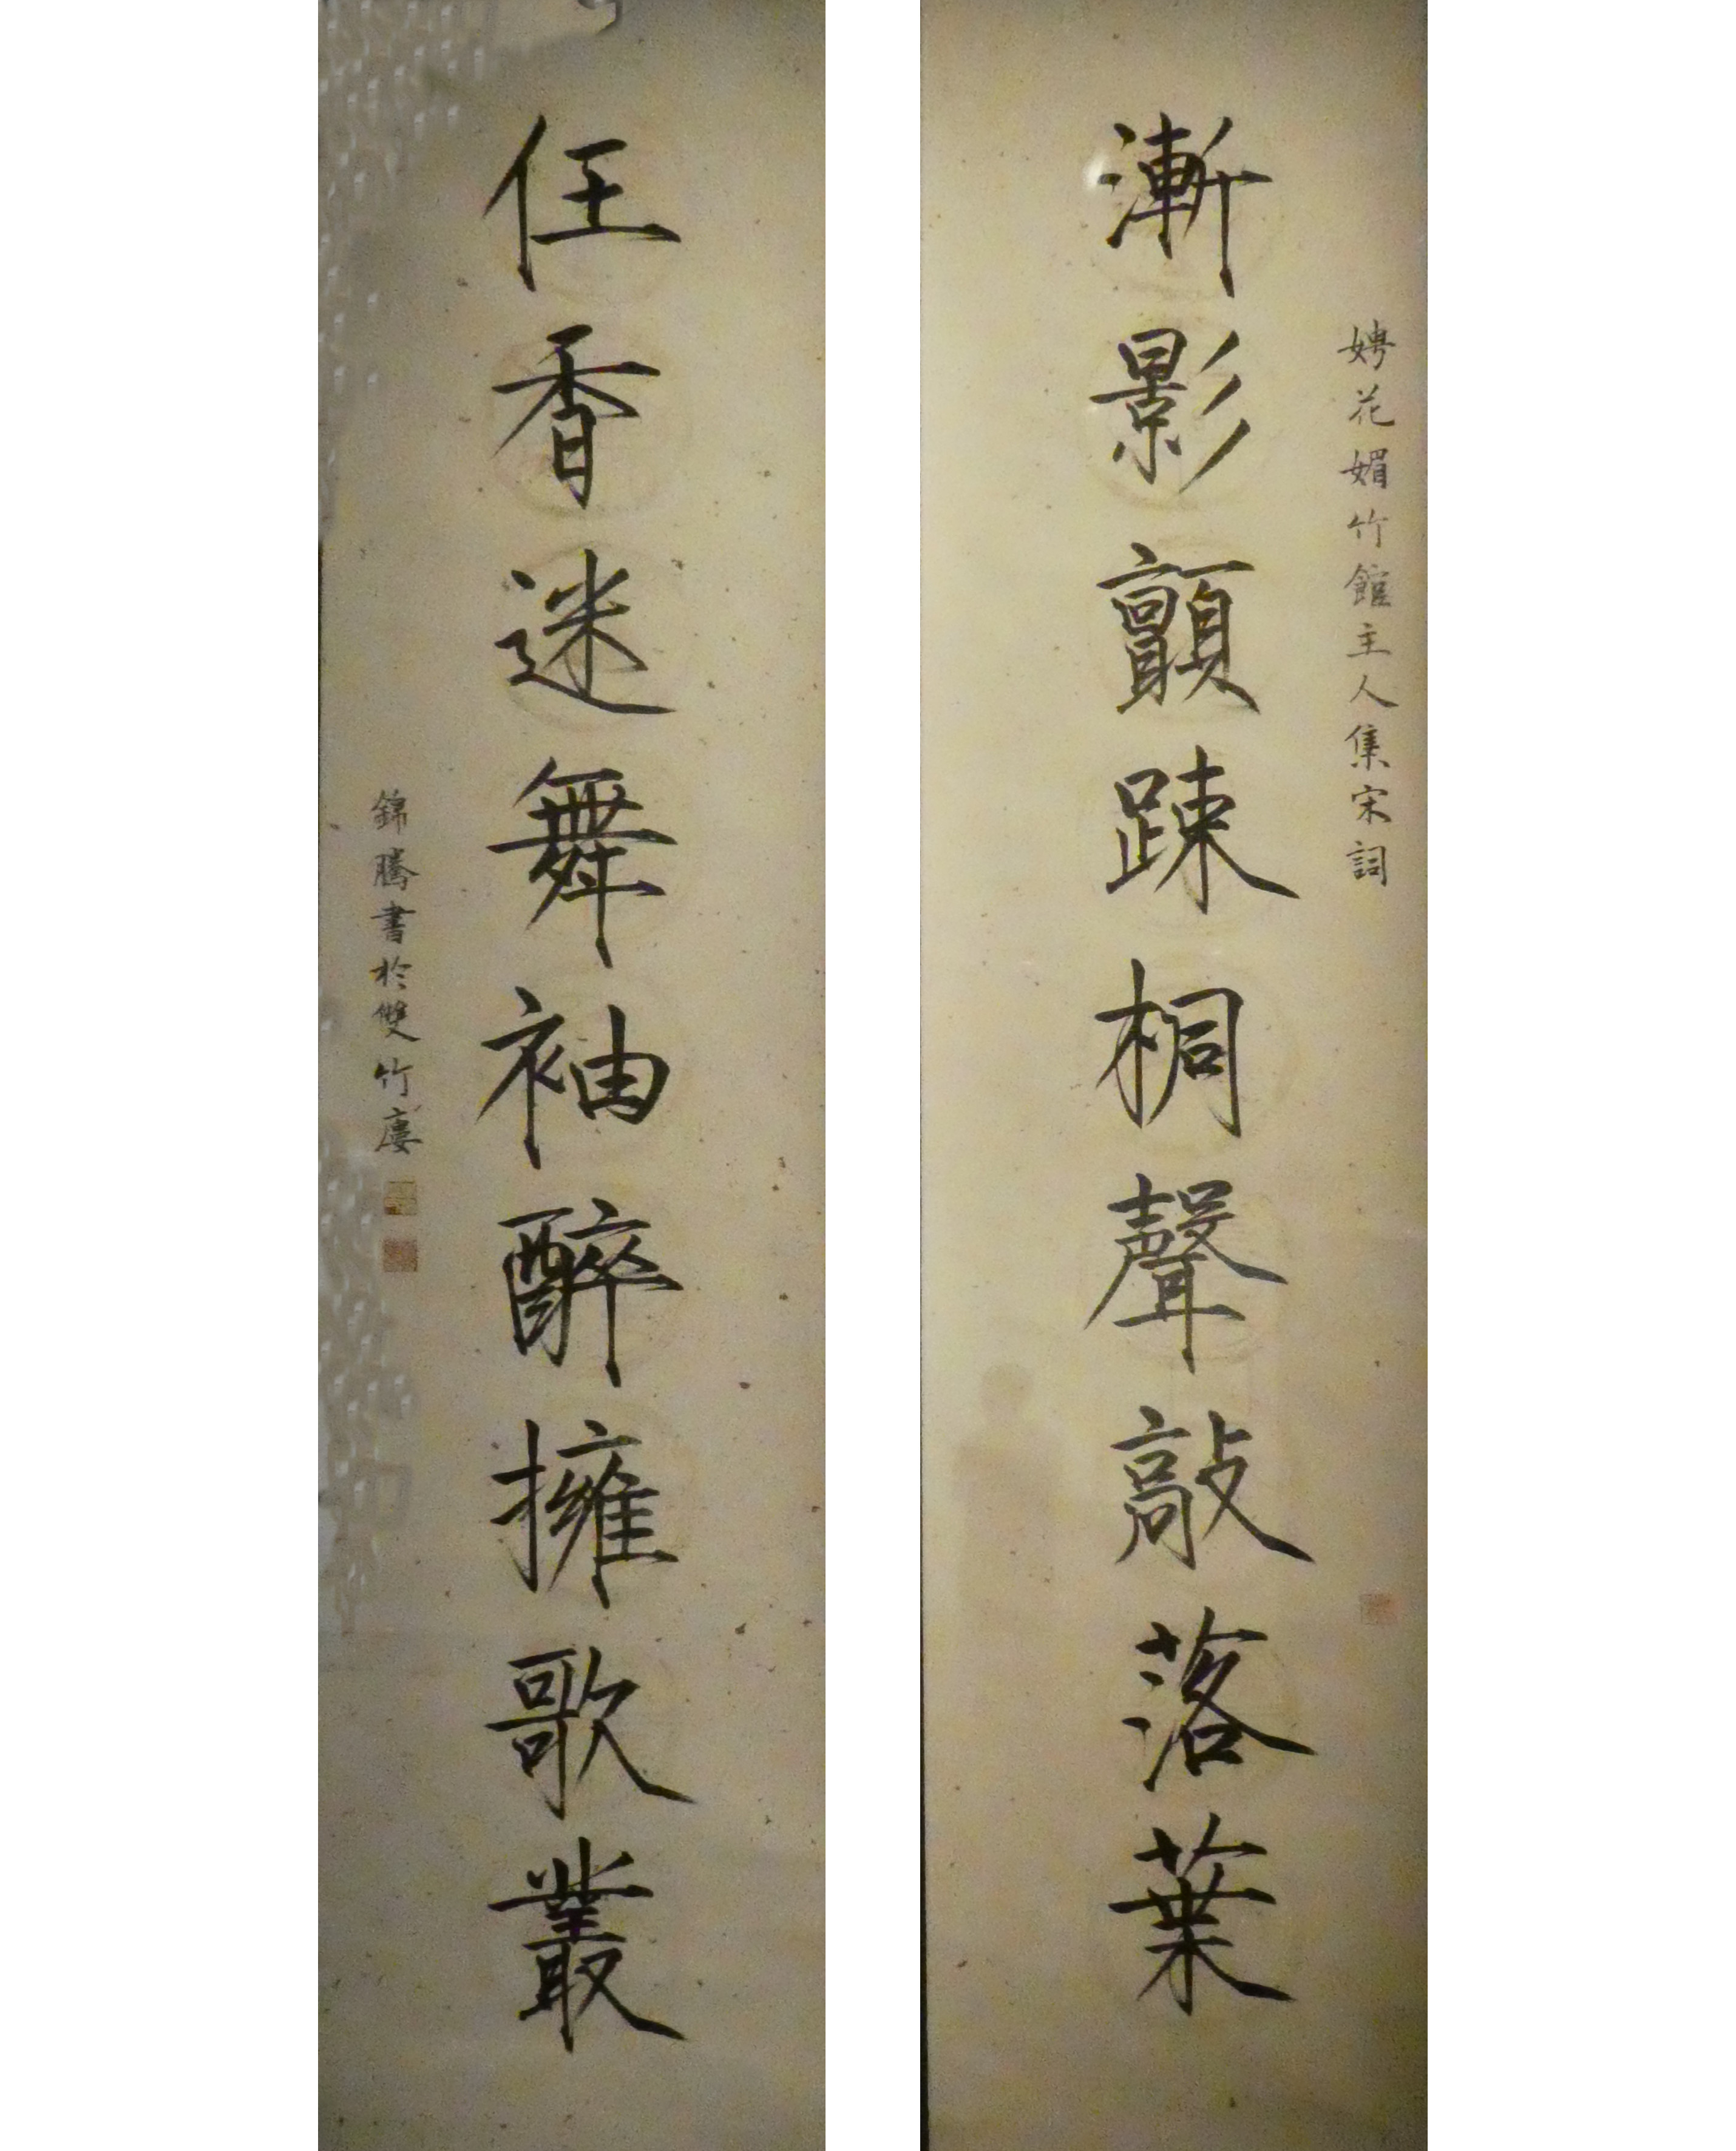 娉花媚竹館主人集宋詞
漸影顫踈桐聲敲落葉
任香迷舞袖醉擁歌叢
錦騰書於雙竹廔